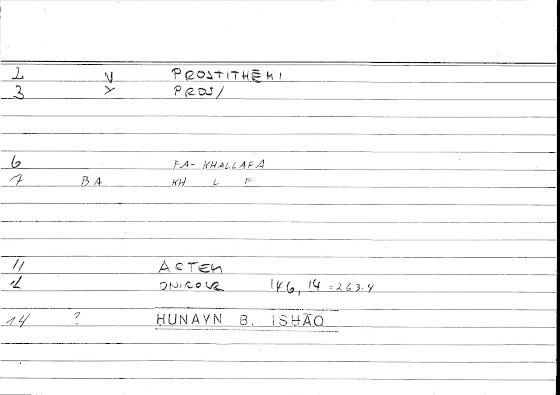 2 V PROSTITHĒMI
3 Y PROS/
6 FA-KHALLAFA
7 BA KH L F
11 ARTEM
12 ONIROCR 146, 14 = 263.4
14 ? HUNAYN B. ISHĀQ